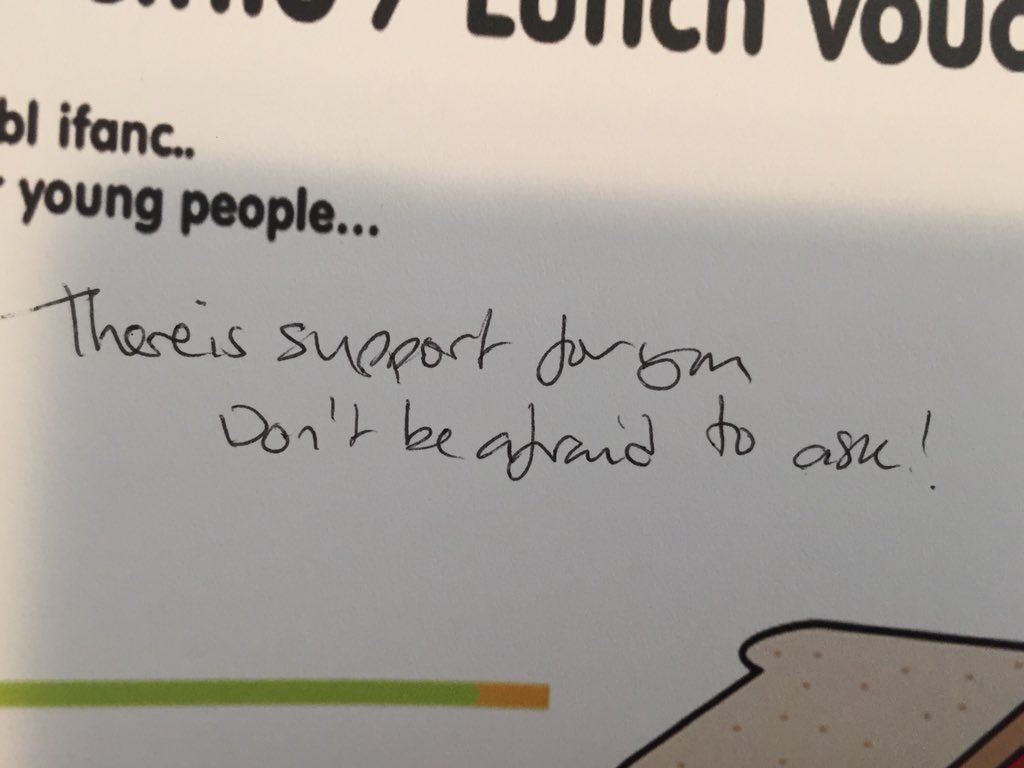 / Lunch
bl ifanc..
young people...
There is support for you
Don't be afraid to ask!